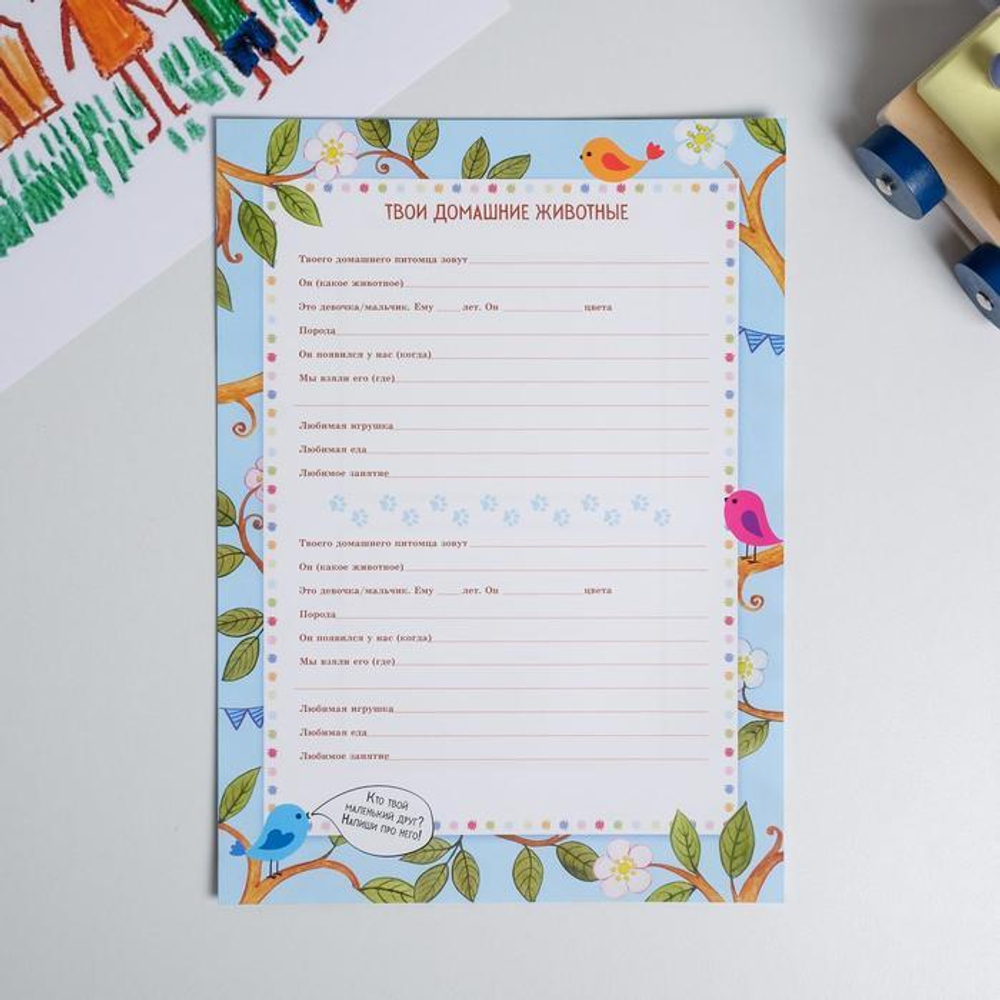 ТВОИ ДОМАШНИЕ ЖИВОТНЫЕ
Твоего домашнего питомца зовут
Он (какое животное)
Это девочка/мальчик. Ему ____ лет. Он ____ цвета
Порода
Он появился у нас (когда)
Мы взяли его (где)
Любимая игрушка
Любимая еда
Любимое занятие
Твоего домашнего питомца зовут
Он (какое животное)
Это девочка/мальчик. Ему ____ лет. Он ____ цвета
Порода
Он появился у нас (когда)
Мы взяли его (где)
Любимая игрушка
Любимая еда
Любимое занятие
Кто твой
маленький друг?
Напиши про него!